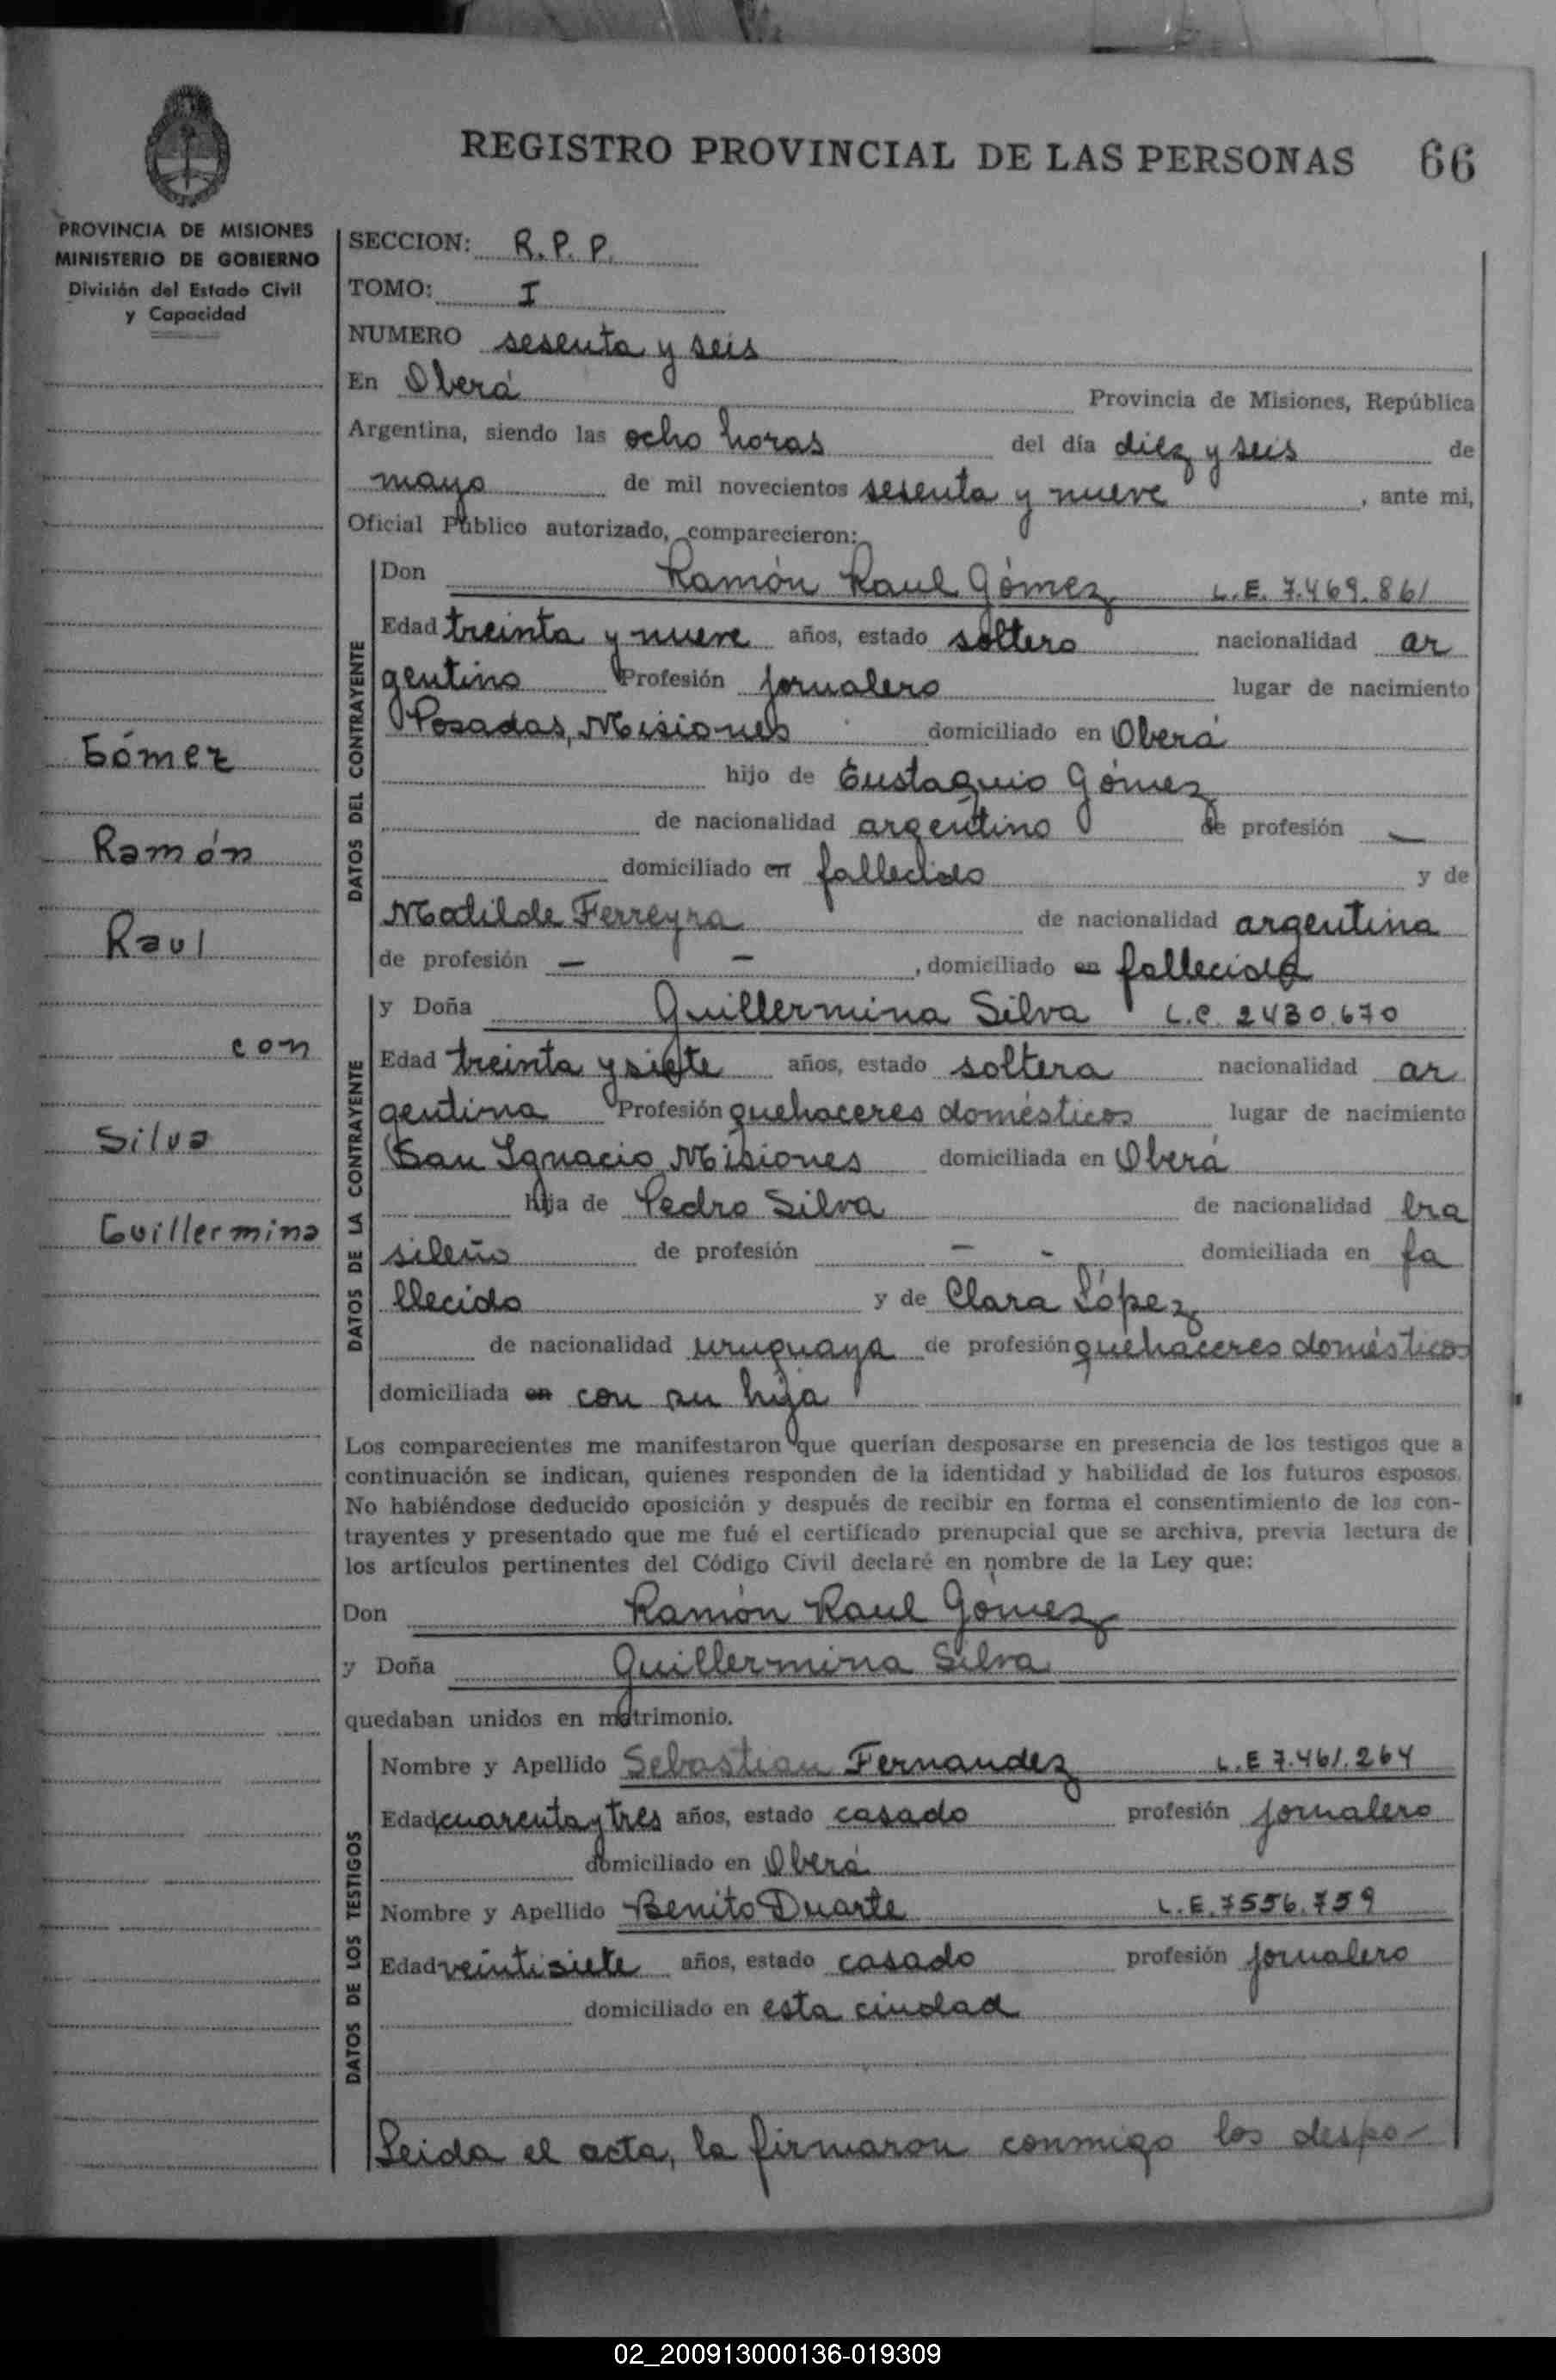 REGISTRO PROVINCIAL DE LAS PERSONAS 66
PROVINCIA DE MISIONES
MINISTERIO DE GOBIERNO
División del Estado Civil
y Capacidad
Gómez
Ramón
Raul
con
Silva
Guillermina
SECCION: R.P.P.
TOMO: I
NUMERO sesenta y seis
En Oberá Provincia de Misiones, República
Argentina, siendo las ocho horas del día diez y seis de
mayo de mil novecientos sesenta y nueve, ante mi,
Oficial Público autorizado, comparecieron:
DATOS DEL CONTRAYENTE
Don Ramón Raul Gómez L.E. 7.469.861
Edad treinta y nueve años, estado soltero nacionalidad ar
gentino Profesión jornalero lugar de nacimiento
Posadas, Misiones domiciliado en Oberá
hijo de Eustaquio Gómez
de nacionalidad argentino de profesión —
domiciliado en fallecido y de
Matilde Ferreyra de nacionalidad argentina
de profesión — —, domiciliado en fallecida
DATOS DE LA CONTRAYENTE
y Doña Guillermina Silva L.C. 2430.670
Edad treinta y siete años, estado soltera nacionalidad ar
gentina Profesión quehaceres domésticos lugar de nacimiento
San Ignacio, Misiones domiciliada en Oberá
hija de Pedro Silva de nacionalidad bra
sileño de profesión — - domiciliada en fa
llecido y de Clara López
de nacionalidad uruguaya de profesión quehaceres domésticos
domiciliada en con su hija
Los comparecientes me manifestaron que querían desposarse en presencia de los testigos que a
continuación se indican, quienes responden de la identidad y habilidad de los futuros esposos.
No habiéndose deducido oposición y después de recibir en forma el consentimiento de los con-
trayentes y presentado que me fué el certificado prenupcial que se archiva, previa lectura de
los artículos pertinentes del Código Civil declaré en nombre de la Ley que:
Don Ramón Raul Gómez
y Doña Guillermina Silva
quedaban unidos en matrimonio.
DATOS DE LOS TESTIGOS
Nombre y Apellido Sebastian Fernandez L.E 7.461.264
Edad cuarenta y tres años, estado casado profesión jornalero
domiciliado en Oberá
Nombre y Apellido Benito Duarte L.E. 7556.759
Edad veintisiete años, estado casado profesión jornalero
domiciliado en esta ciudad
Leida el acta, la firmaron conmigo los despo-
02_200913000136-019309